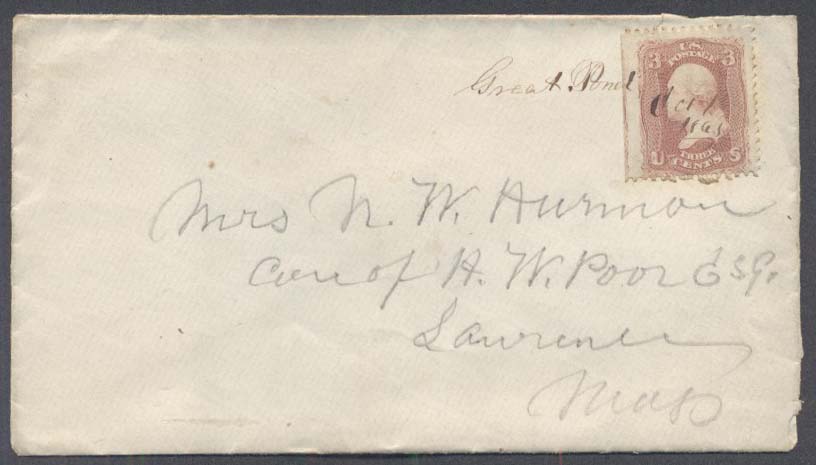 Great Pond
3 U.S. 3
POSTAGE
Oct 1
1865
THREE
U CENTS S
Mrs N. W. Harmon
Care of H. W. Poor Esq.
Lawrence
Mass